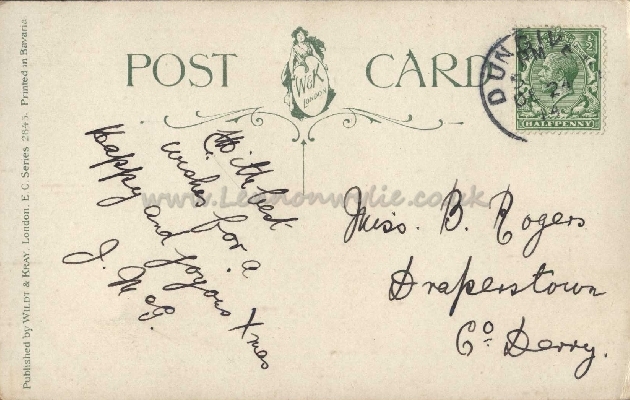 POST CARD
W&K
LONDON
DUNGIV
DE 24
HALFPENNY
With best
wishes for a
happy and joyous Xmas
J. McG.
Miss. B. Rogers
Draperstown
Co Derry.
Published by WILDT & KRAY, London, E.C. Series 2845. Printed in Bavaria
www.Lennonwylie.co.uk